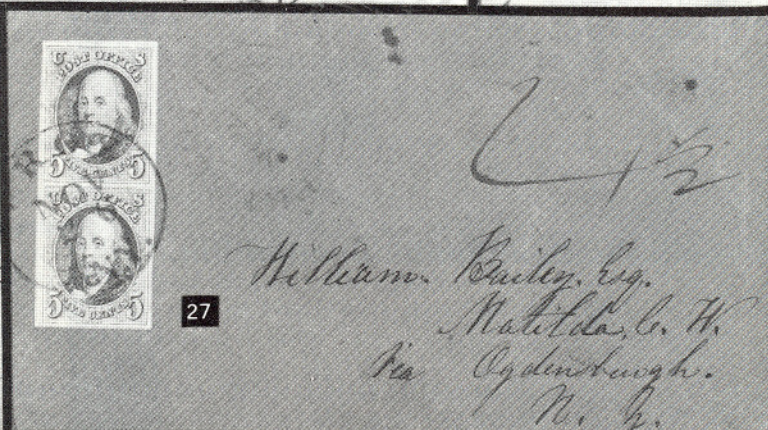 U S
POST OFFICE
5 FIVE CENTS 5
U S
POST OFFICE
5 FIVE CENTS 5
NOV
27
William Bailey, Esq.
Matilda, C. W.
Via Ogdensburgh.
N. Y.